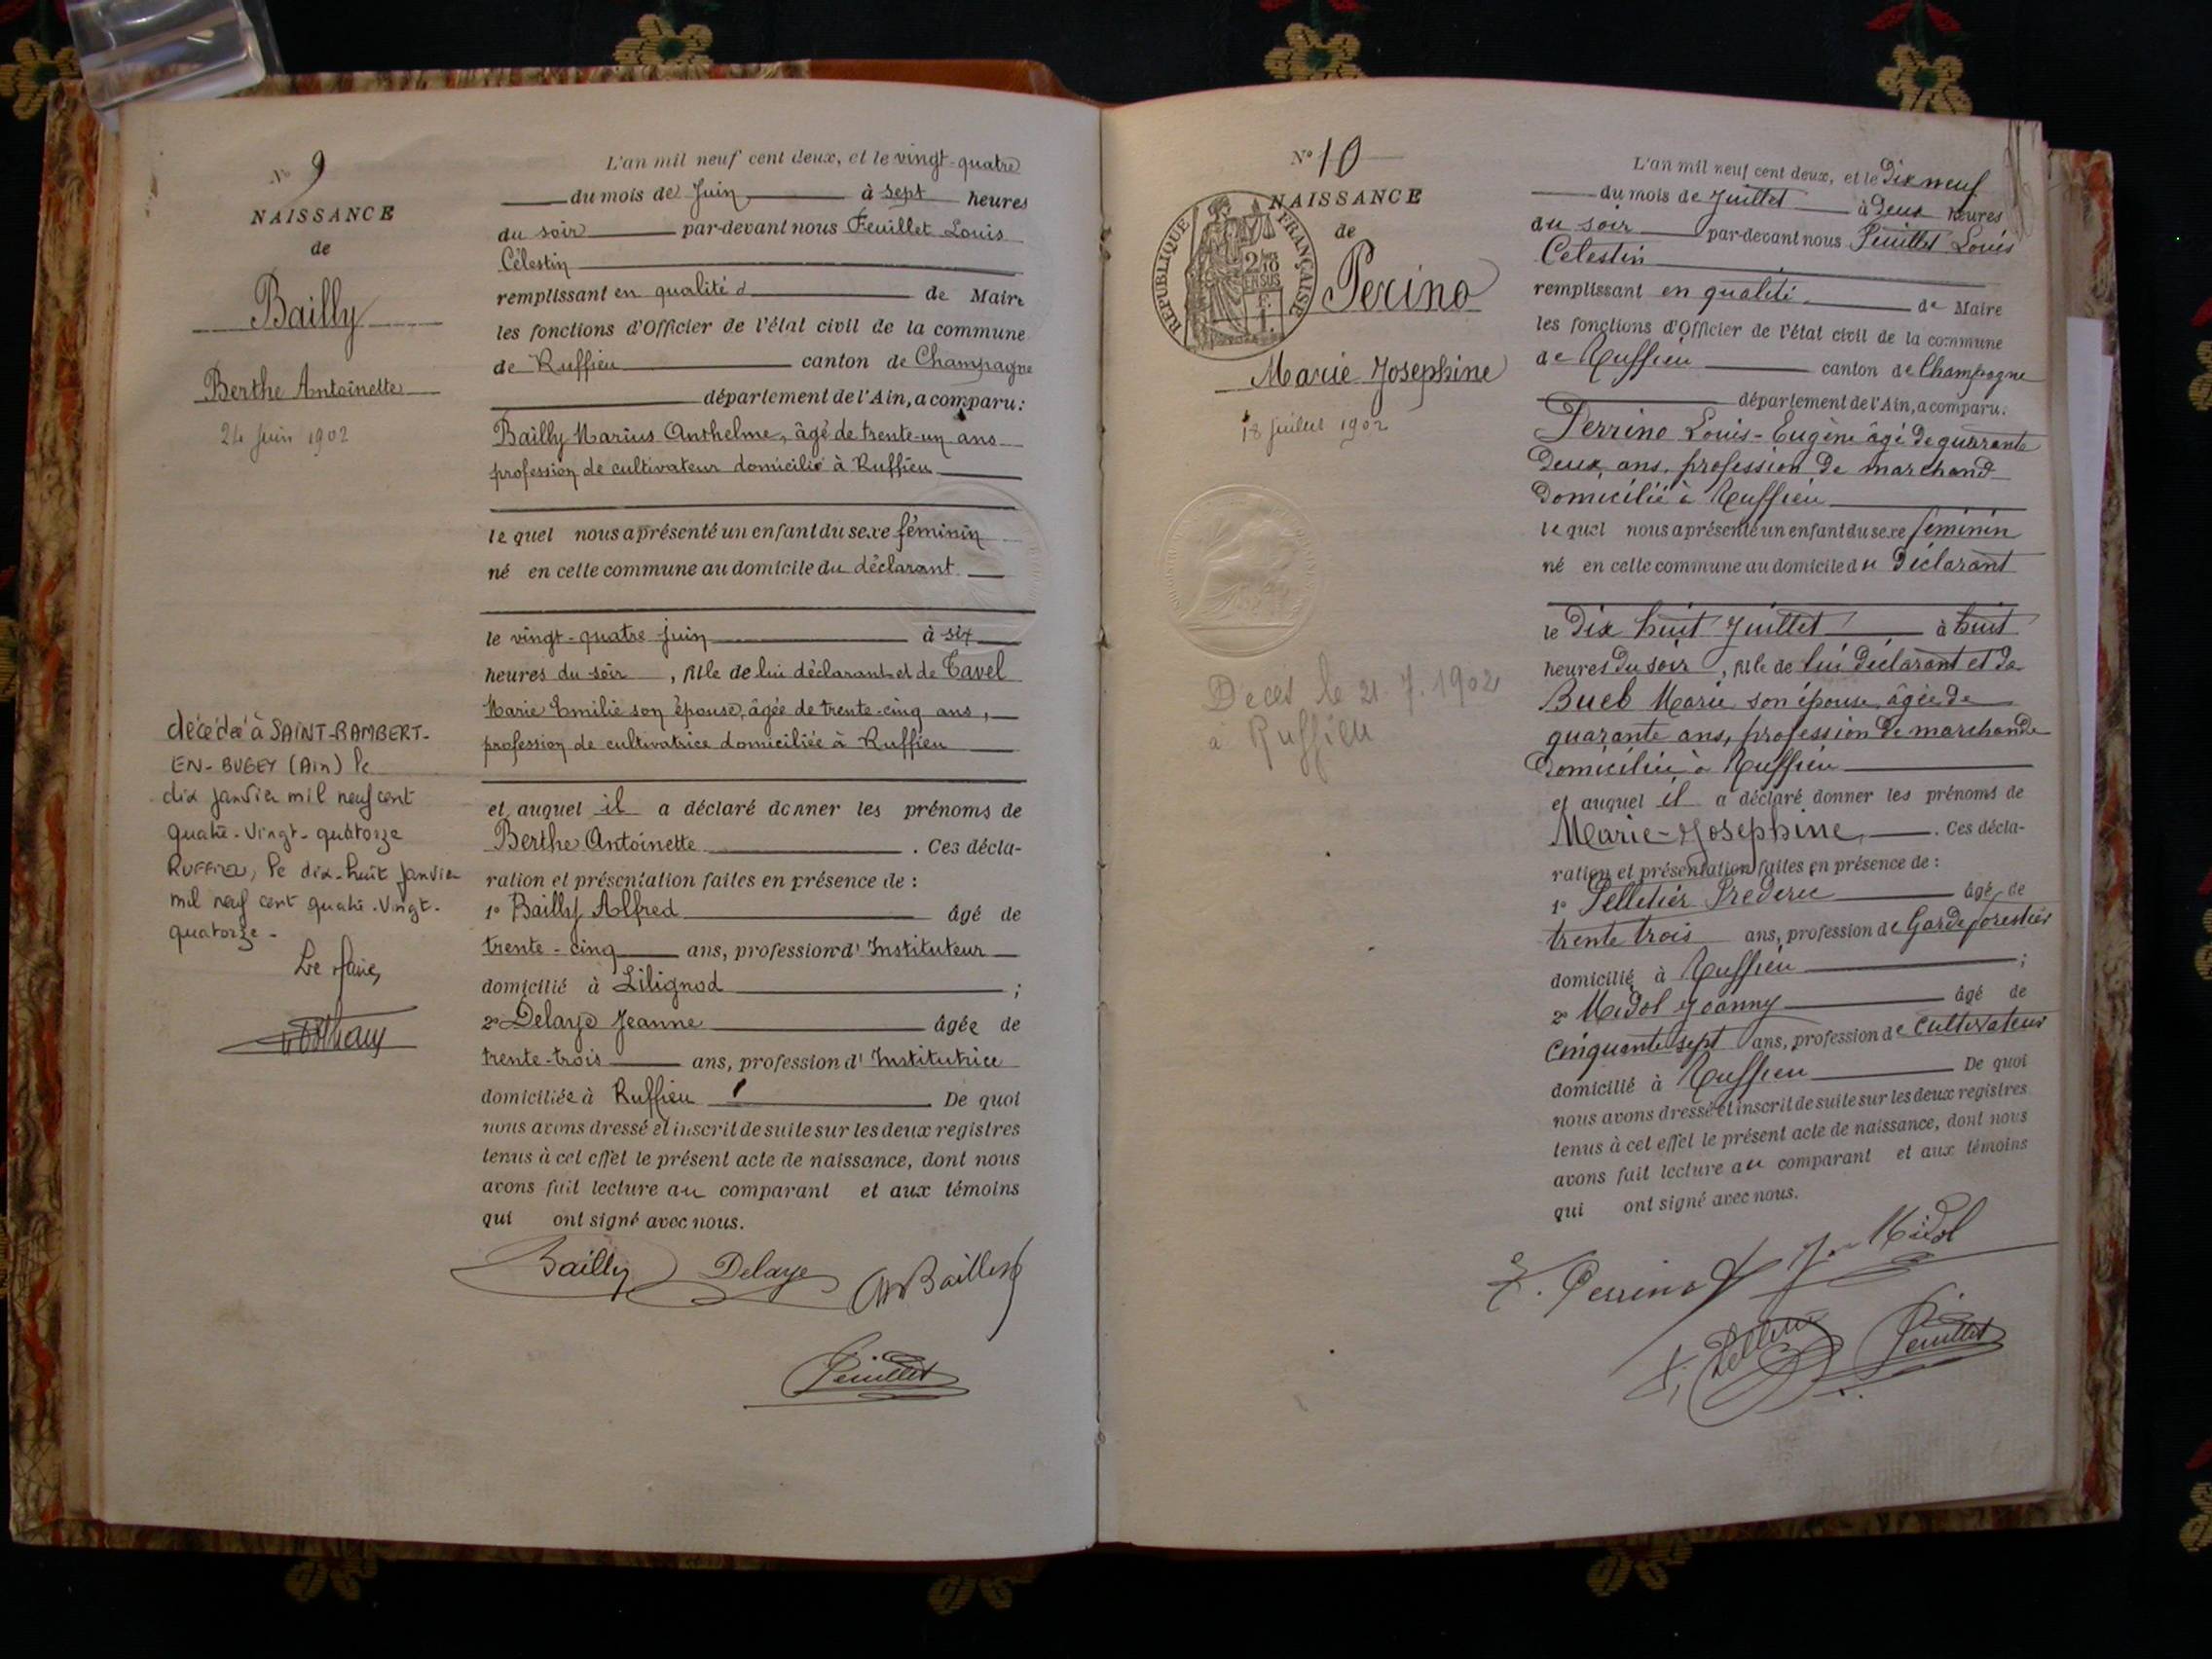 N° 9
NAISSANCE
de
Bailly
Berthe Antoinette
24 juin 1902
décédée à SAINT-RAMBERT-
EN-BUGEY (Ain) le
dix janvier mil neuf cent
quatre-vingt-quatorze
RUFFIEU, le dix-huit janvier
mil neuf cent quatre-vingt-
quatorze-
Le Maire,
L'an mil neuf cent deux, et le vingt-quatre
du mois de Juin à sept heures
du soir par-devant nous Feuillet Louis
Célestin
remplissant en qualité d de Maire
les fonctions d'Officier de l'état civil de la commune
de Ruffieu canton de Champagne
département de l'Ain, a comparu:
Bailly Marius Anthelme, âgé de trente-un ans
profession de cultivateur domicilié à Ruffieu
le quel nous a présenté un enfant du sexe féminin
né en cette commune au domicile du déclarant
le vingt-quatre juin à six
heures du soir, fille de lui déclarant et de Tavel
Marie Emilie son épouse, âgée de trente-cinq ans,
profession de cultivatrice domiciliée à Ruffieu
et auquel il a déclaré donner les prénoms de
Berthe Antoinette. Ces décla-
ration et présentation faites en présence de :
1° Bailly Alfred âgé de
trente-cinq ans, profession d' Instituteur
domicilié à Lilignod ;
2° Delaye Jeanne âgée de
trente-trois ans, profession d' Institutrice
domiciliée à Ruffieu De quoi
nous avons dressé et inscrit de suite sur les deux registres
tenus à cet effet le présent acte de naissance, dont nous
avons fait lecture au comparant et aux témoins
qui ont signé avec nous.
Bailly Delaye A Bailly
Feuillet
N° 10
NAISSANCE
de
RÉPUBLIQUE FRANÇAISE
2/10 EN SUS
Perino
Marie Josephine
18 juillet 1902
Décès le 21.7.1902
à Ruffieu
L'an mil neuf cent deux, et le Dix neuf
du mois de Juillet à Deux heures
du soir par-devant nous Feuillet Louis
Celestin
remplissant en qualité de Maire
les fonctions d'Officier de l'état civil de la commune
de Ruffieu canton de Champagne
département de l'Ain, a comparu:
Perrino Louis-Eugène âgé de quarante
Deux ans, profession de marchand
Domicilié à Ruffieu
le quel nous a présenté un enfant du sexe feminin
né en cette commune au domicile du Déclarant
le Dix huit Juillet à huit
heures du soir, fille de lui déclarant et de
Bueb Marie son épouse âgée de
quarante ans, profession de marchande
Domiciliée à Ruffieu
et auquel il a déclaré donner les prénoms de
Marie-Josephine,. Ces décla-
ration et présentation faites en présence de :
1° Pelletier Frederic âgé de
trente trois ans, profession de Garde forestier
domicilié à Ruffieu ;
2° Midol Joanny âgé de
Cinquante sept ans, profession de cultivateur
domicilié à Ruffieu De quoi
nous avons dressé et inscrit de suite sur les deux registres
tenus à cet effet le présent acte de naissance, dont nous
avons fait lecture au comparant et aux témoins
qui ont signé avec nous.
Perrino Midol
Feuillet